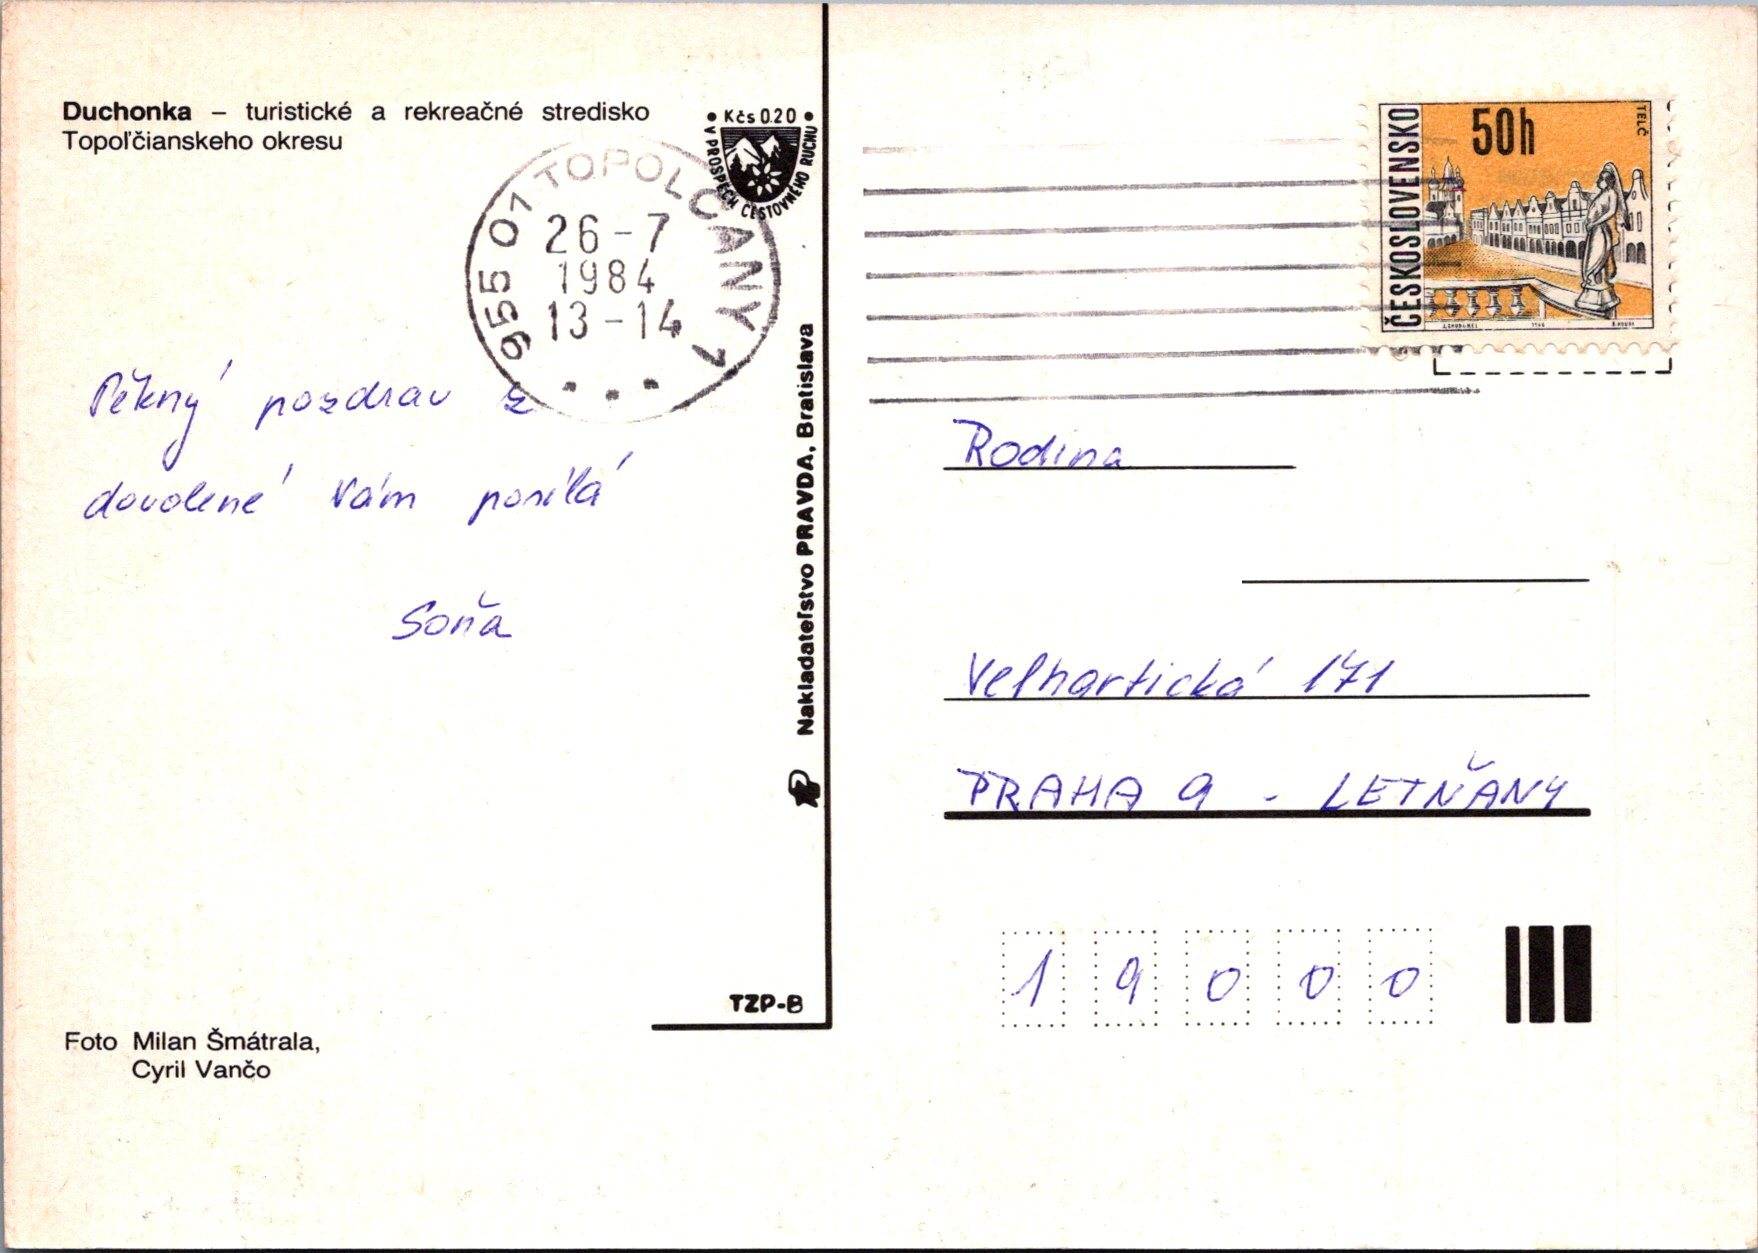 Duchonka – turistické a rekreačné stredisko
Topoľčianskeho okresu
• Kčs 0.20 •
V PROSPECH CESTOVNÉHO RUCHU
955 01 TOPOĽČANY 1
26-7
1984
13-14
Pěkný pozdrav z
dovolené Vám posílá
Soňa
Nakladateľstvo PRAVDA, Bratislava
TZP-B
Foto Milan Šmátrala,
Cyril Vančo
ČESKOSLOVENSKO
50h
TELČ
1966
Rodina
Velhartická 171
PRAHA 9 - LETŇANY
19000